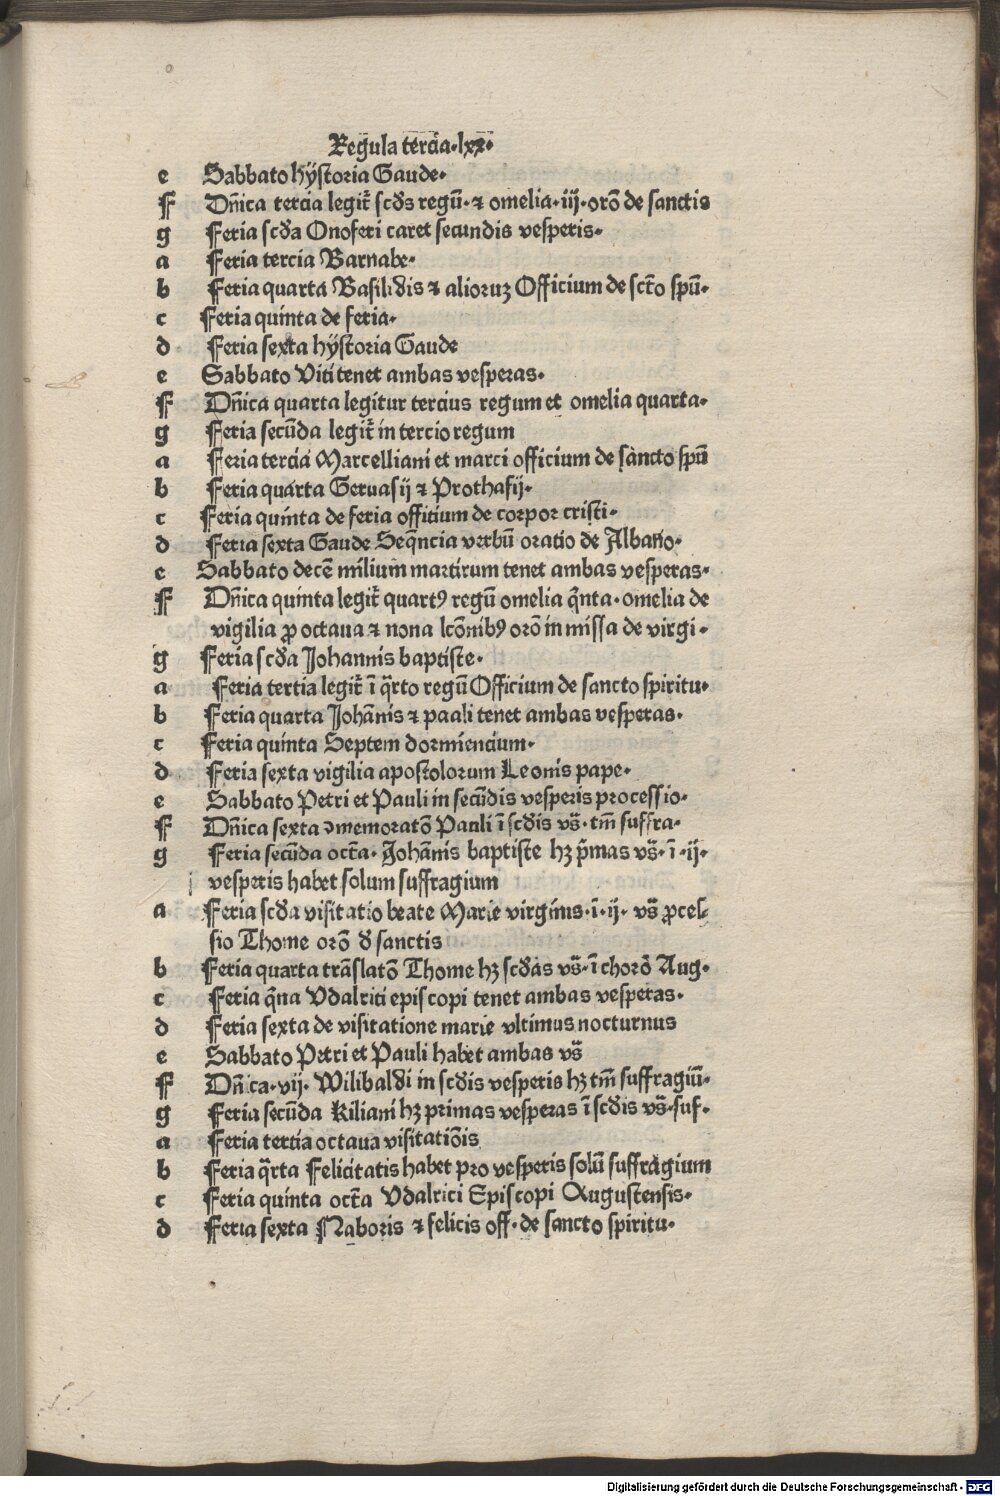 Regula tercia·lxx·
e Sabbato hÿstoria Gaude·
F Dn̄ica tercia legit̄ scd̄s regū·⁊ omelia·iij·orō de sanctis
g Feria scd̄a Onoferi caret secundis vesperis·
a Feria tercia Barnabe·
b Feria quarta Basilidis ⁊ alioruꝫ Officium de sct̄o spū·
c Feria quinta de feria·
d Feria sexta hÿstoria Gaude
e Sabbato Viti tenet ambas vesperas·
F Dn̄ica quarta legitur tercius regum et omelia quarta·
g Feria secūda legit̄ in tercio regum
a Feria tercia Marcelliani et marci officium de sancto spū
b Feria quarta Geruasij ⁊ Prothasij·
c Feria quinta de feria offitium de corpor cristi·
d Feria sexta Gaude Seq̄ncia verbū oratio de Albano·
e Sabbato decē milium martirum tenet ambas vesperas·
F Dn̄ica quinta legit̄ quartꝰ regū omelia q̄nta·omelia de
vigilia ꝓ octaua ⁊ nona lcōnibꝰ orō in missa de virgi·
g Feria scd̄a Johannis baptiste·
a Feria tertia legit̄ ī q̄rto regū Officium de sancto spiritu·
b Feria quarta Johānis ⁊ paali tenet ambas vesperas·
c Feria quinta Septem dormiencium·
d Feria sexta vigilia apostolorum Leonis pape·
e Sabbato Petri et Pauli in secūdis vesperis processio·
F Dn̄ica sexta ꝯmemoratō Pauli ī scd̄is vs̄·tm̄ suffra·
g Feria secūda oct̄a·Johānis baptiste hꝫ p̄mas vs̄·ī·ij·
vesperis habet solum suffragium
a Feria scd̄a visitatio beate Marie virginis·ī·ij·vs̄ ꝓces⸗
sio Thome orō d̄ sanctis
b Feria quarta trāslatō Thome hꝫ scd̄as vs̄·ī chorō Aug·
c Feria q̄na Vdalrici episcopi tenet ambas vesperas·
d Feria sexta de visitatione marie vltimus nocturnus
e Sabbato Petri et Pauli habet ambas vs̄
F Dn̄ica·vij·Wilibaldi in scd̄is vesperis hꝫ tm̄ suffragiū·
g Feria secūda Kiliani hꝫ primas vesperas ī scd̄is vs̄·suf·
a Feria tertia octaua visitatiōis
b Feria q̄rta Felicitatis habet pro vesperis solū suffragium
c Feria quinta oct̄a Vdalrici Episcopi Augustensis·
d Feria sexta Naboris ⁊ felicis off·de sancto spiritu·
Digitalisierung gefördert durch die Deutsche Forschungsgemeinschaft - DFG